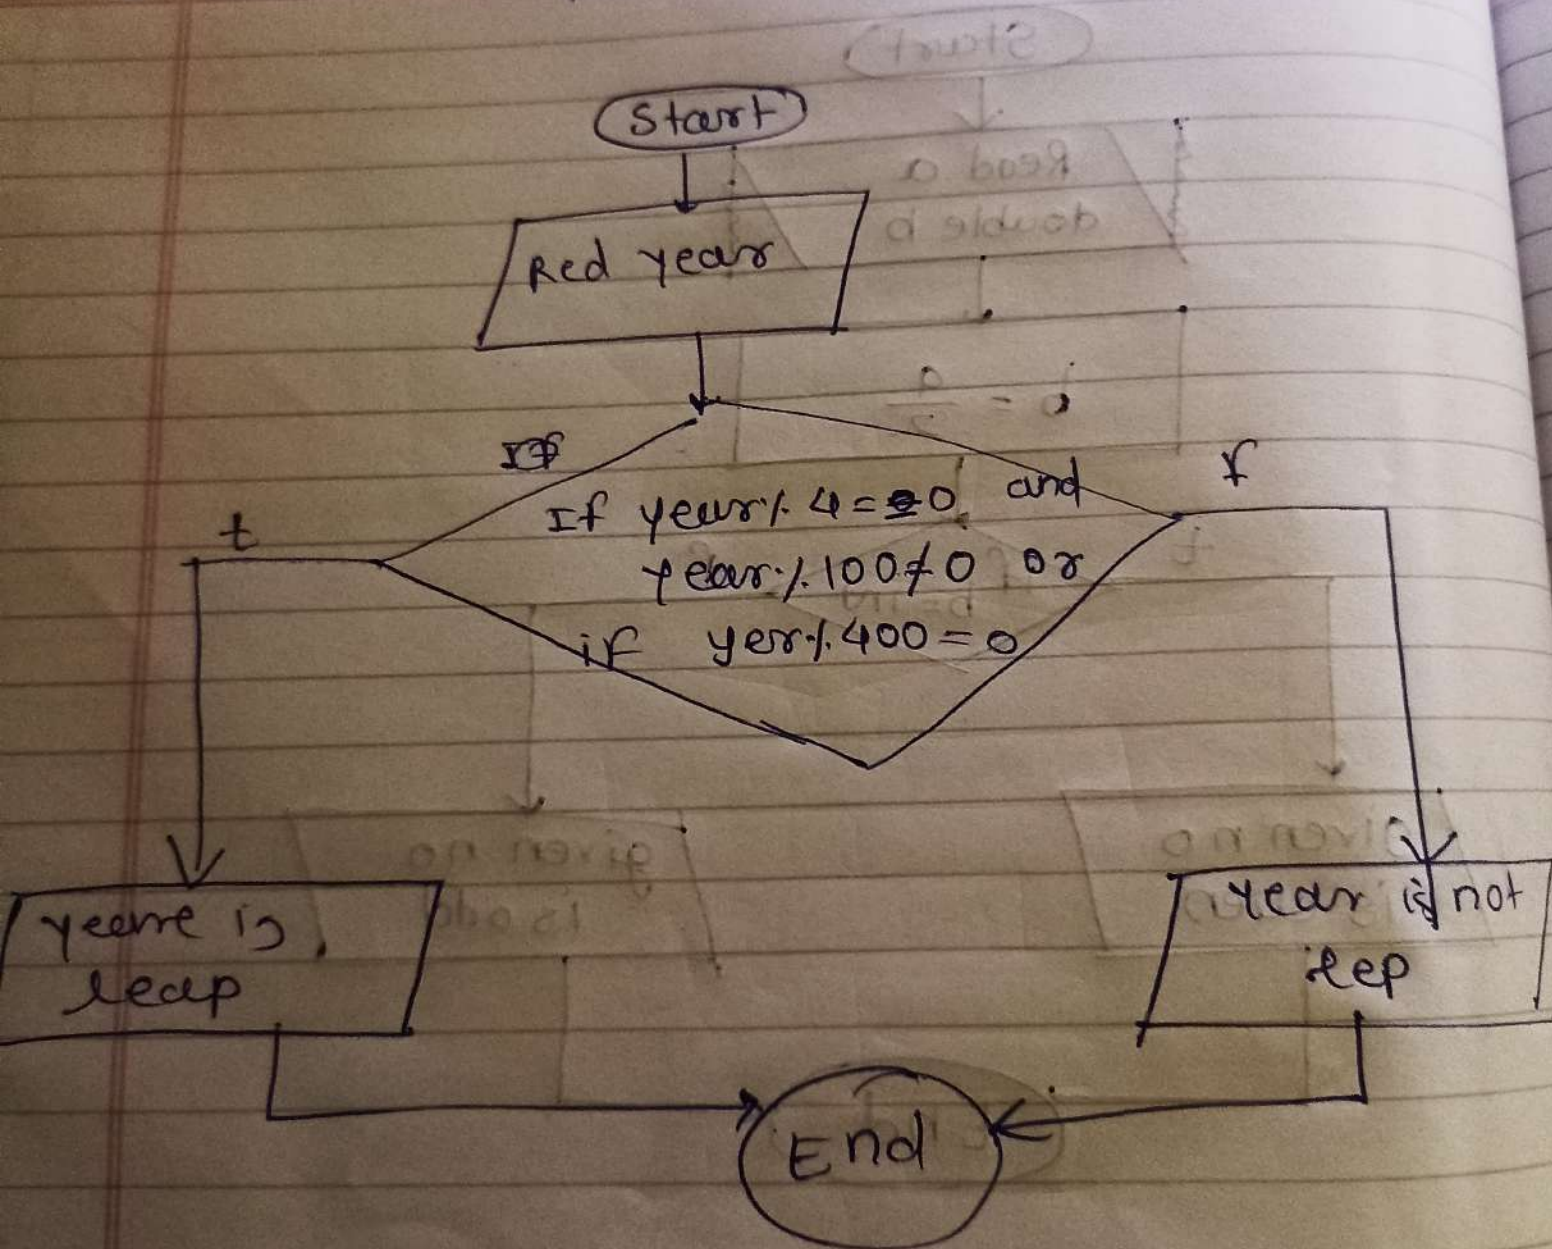 Start
Red year
If
If year % 4 = 0 and
year % 100 ≠ 0 or
if yer % 400 = 0
t
f
yeare is
leap
year is not
lep
End